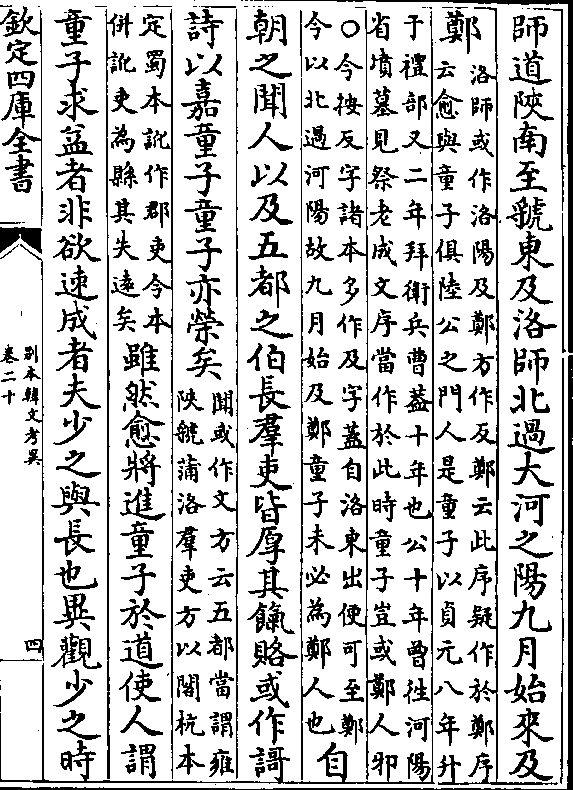 師道陜南至虢東及洛師北過大河之陽九月始來及
鄭洛師或作洛陽及鄭方作反鄭云此序疑作於鄭序
云愈與童子俱陸公之門人是童子以貞元八年升
于禮部又二年拜衛兵曹葢十年也公十年曽徃河陽
省墳墓見祭老成文序當作於此時童子豈或鄭人邪
○今按反字諸本多作及字葢自洛東出便可至鄭
今以北過河陽故九月始及鄭童子未必為鄭人也自
朝之聞人以及五都之伯長羣吏皆厚其餼賂或作謌
詩以嘉童子童子亦榮矣聞或作文方云五都當謂雍
陜虢蒲洛羣吏方以閣杭本
定蜀本訛作郡吏今本
併訛吏為縣其失逺矣雖然愈將進童子於道使人謂
童子求益者非欲速成者夫少之與長也異觀少之時
欽定四庫全書
别本韓文考異
卷二十
四